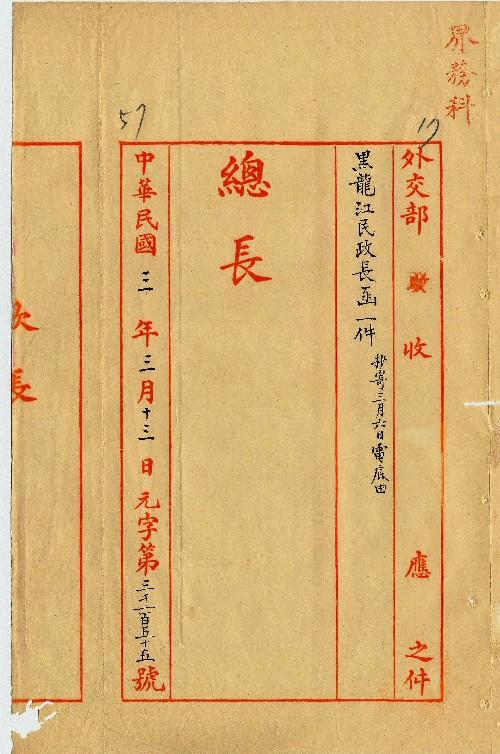 界務科
19
外交部收應之件
黑龍江民政長函一件
抄寄三月六日電底由
總長
57
中華民國三年三月十三日元字第三千一百五十五號
次長